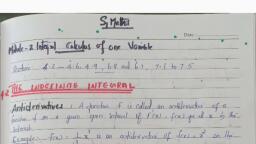 S1 Maths
Date
Module-2 Integral Calculus of one Variable
Section 4.2 - 4.6, 4.9, 6.8 and 6.1, 7.1 to 7.5
4.2 THE INDEFINITE INTEGRAL
Antiderivatives: A function F is called an antiderivative of a
function f on a given open interval if F'(x) = f(x) for all x in the
interval.
Example: F(x) = 1/3 x³ is an antiderivative of f(x) = x² on the